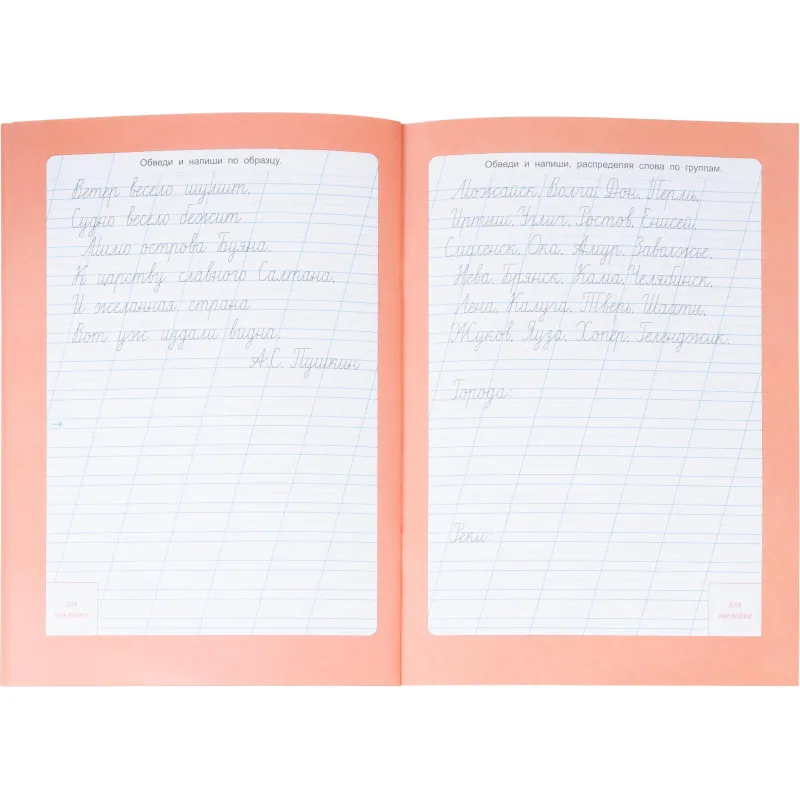 Обведи и напиши по образцу.
Ветер весело шумит,
Судно весело бежит
Мимо острова Буяна,
К царству славного Салтана,
И желанная страна
Вот уж издали видна.
А.С. Пушкин
для
наклейки
Обведи и напиши, распределяя слова по группам.
Можайск, Волга, Дон, Пермь,
Иртыш, Углич, Ростов, Енисей,
Смоленск, Ока, Амур, Заволжье,
Нева, Брянск, Кама, Челябинск,
Лена, Калуга, Тверь, Шахты,
Жуков, Яуза, Хопёр, Геленджик.
Города:
Реки:
для
наклейки